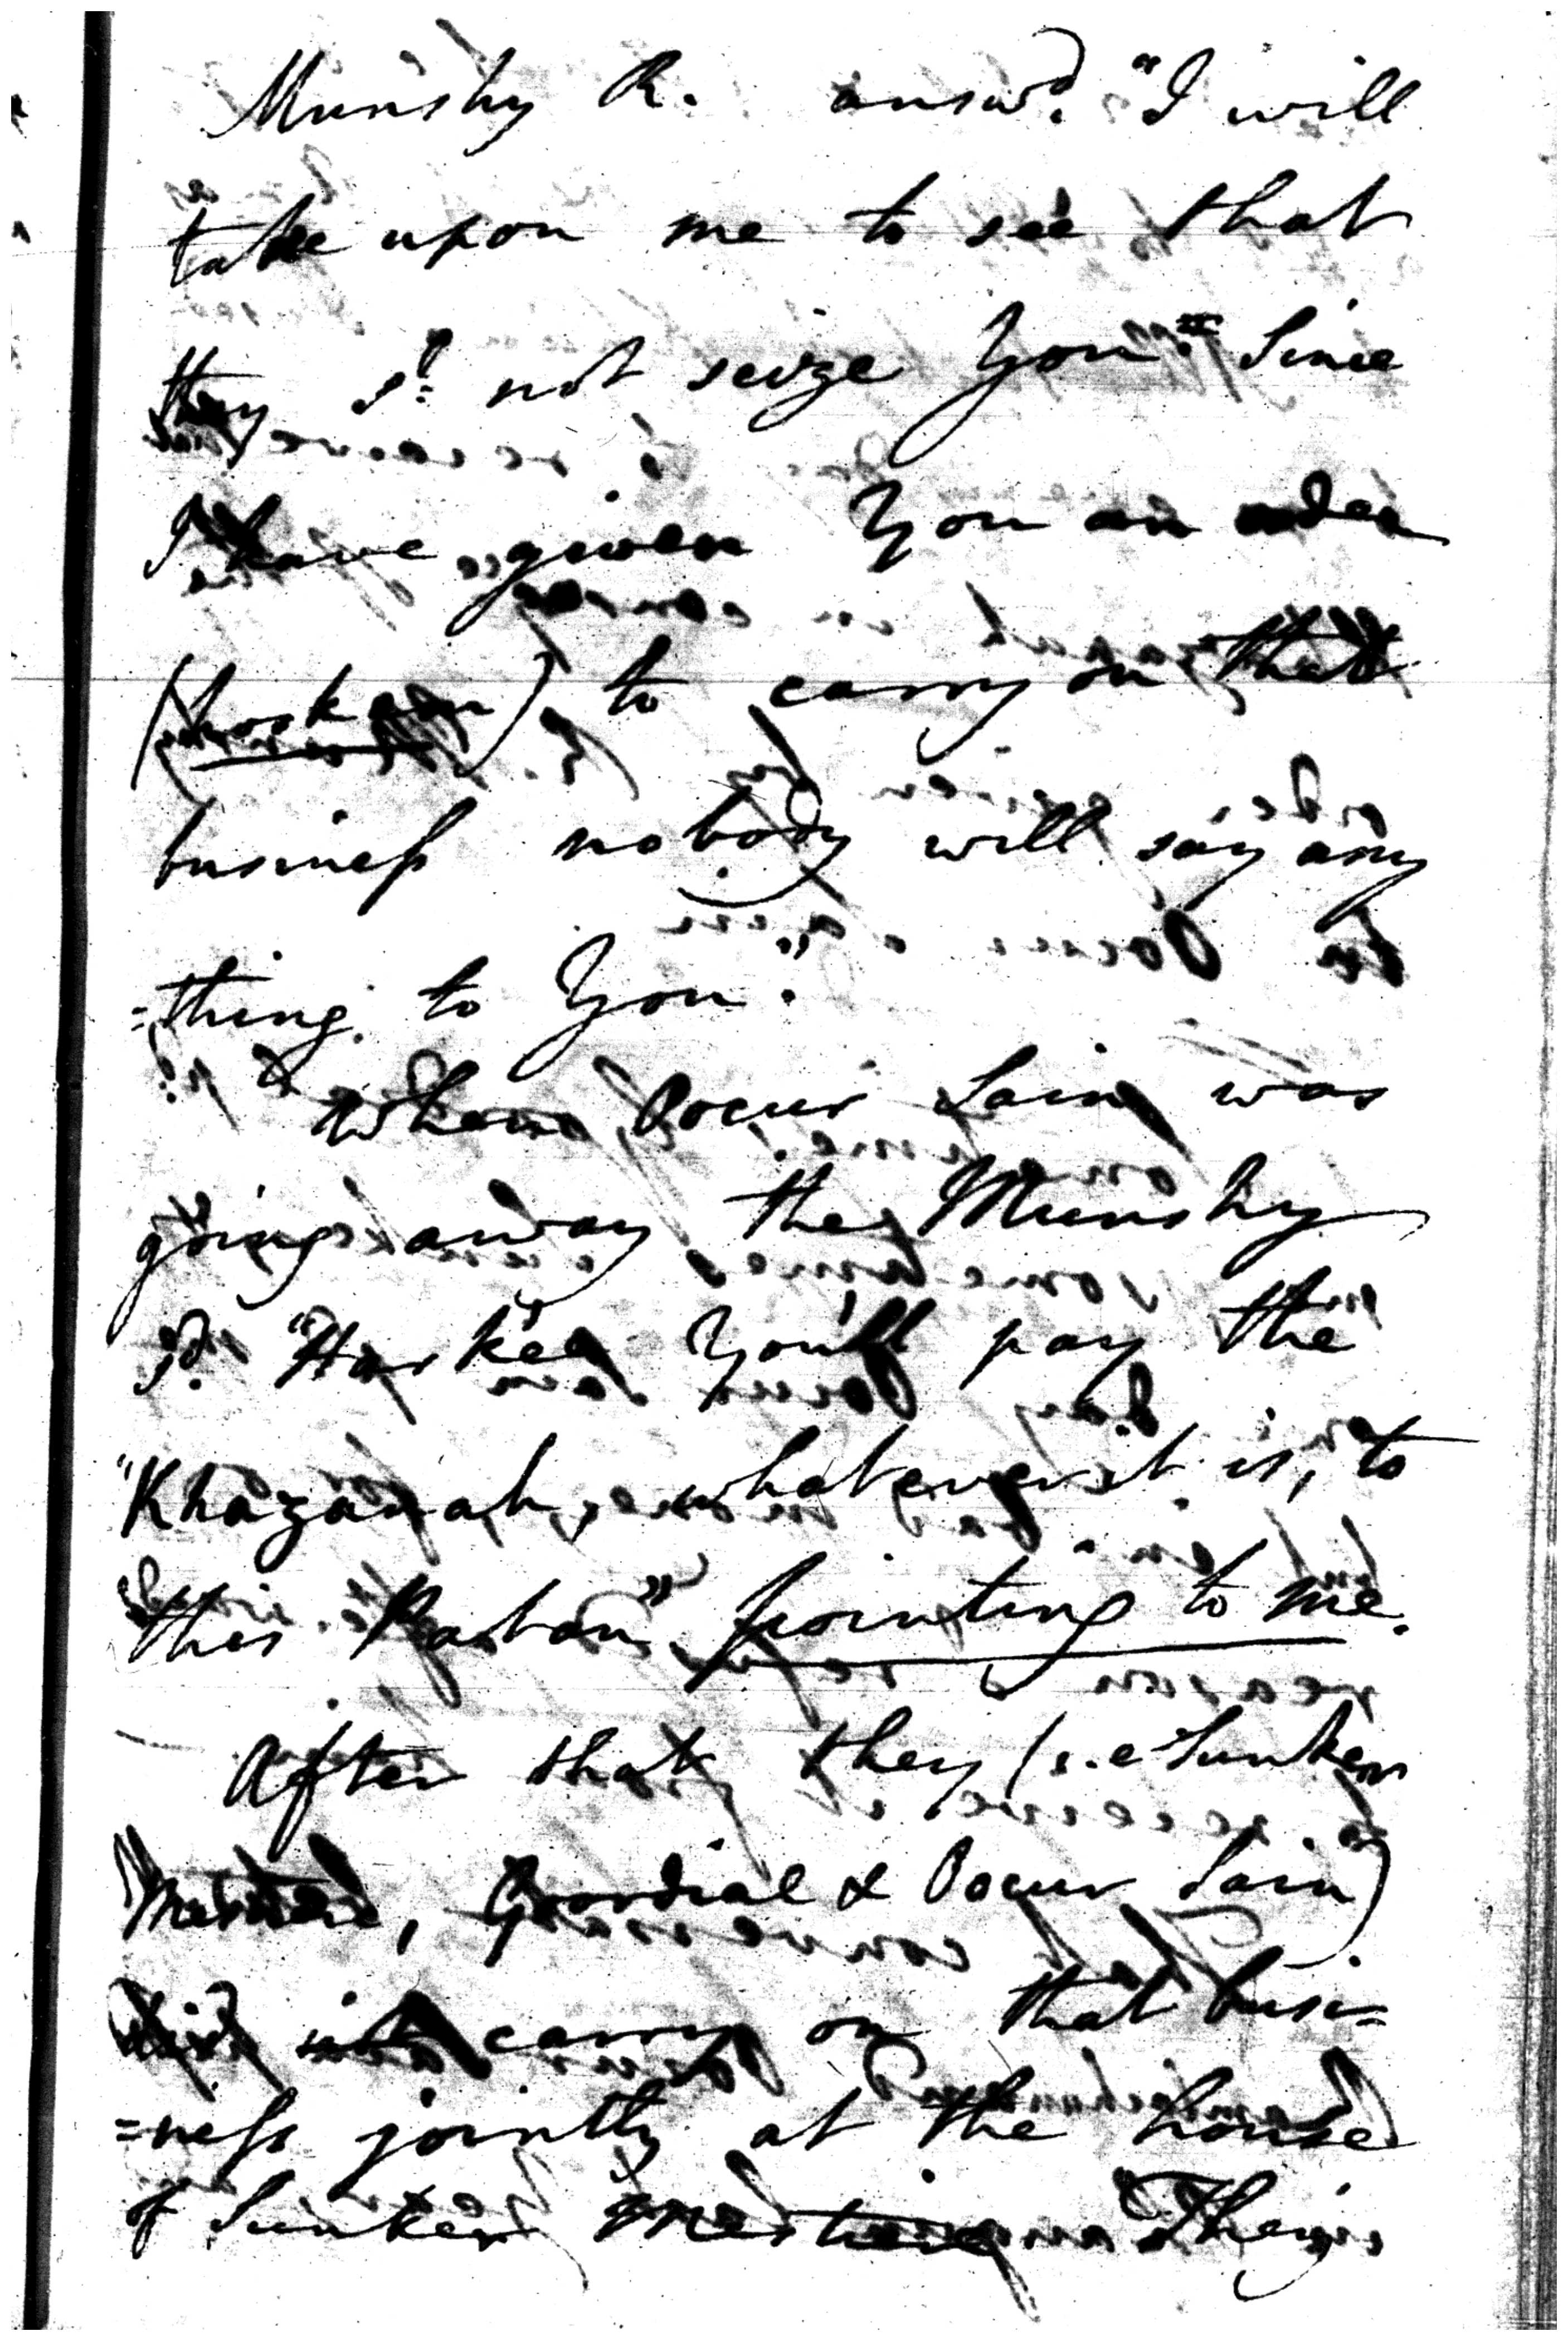 Munshy R. answd. "I will
take upon me to see that
they sd. not seize You." Since
I have given You an order
(hookum) to carry on that
business nobody will say any
=thing to You."
When Pocur Sain was
going away the Munshy
sd. "Harkee You'll pay the
"Khazanah, whatever it is, to
this Ratan" pointing to me.
After that they (i.e Sunker
, Goordial & Pocur Sain)
carry on that busi=
=ness jointly at the house
of Sunker They